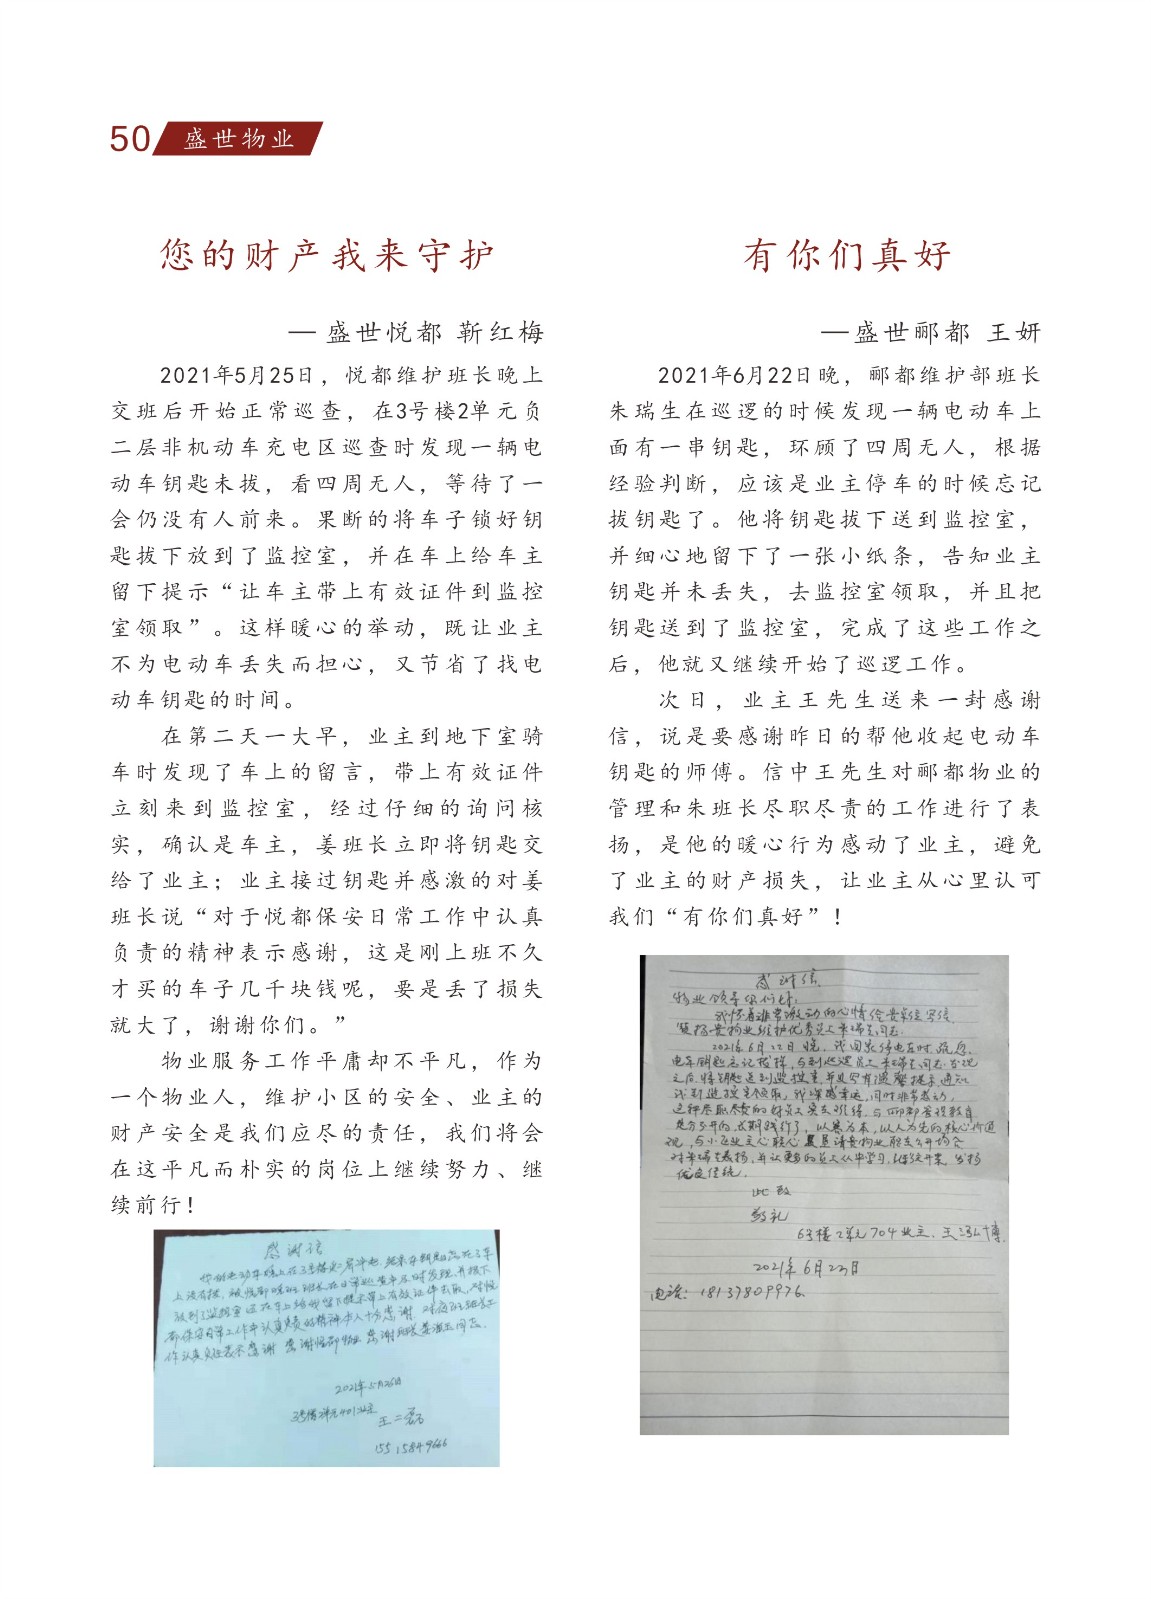 50 盛世物业
您的财产我来守护
— 盛世悦都 靳红梅
2021年5月25日，悦都维护班长晚上
交班后开始正常巡查，在3号楼2单元负
二层非机动车充电区巡查时发现一辆电
动车钥匙未拔，看四周无人，等待了一
会仍没有人前来。果断的将车子锁好钥
匙拔下放到了监控室，并在车上给车主
留下提示“让车主带上有效证件到监控
室领取”。这样暖心的举动，既让业主
不为电动车丢失而担心，又节省了找电
动车钥匙的时间。
在第二天一大早，业主到地下室骑
车时发现了车上的留言，带上有效证件
立刻来到监控室，经过仔细的询问核
实，确认是车主，姜班长立即将钥匙交
给了业主；业主接过钥匙并感激的对姜
班长说“对于悦都保安日常工作中认真
负责的精神表示感谢，这是刚上班不久
才买的车子几千块钱呢，要是丢了损失
就大了，谢谢你们。”
物业服务工作平庸却不平凡，作为
一个物业人，维护小区的安全、业主的
财产安全是我们应尽的责任，我们将会
在这平凡而朴实的岗位上继续努力、继
续前行！
感谢信
2021年5月26日
3号楼2单元401业主
王二磊
15515849666
有你们真好
—盛世郦都 王妍
2021年6月22日晚，郦都维护部班长
朱瑞生在巡逻的时候发现一辆电动车上
面有一串钥匙，环顾了四周无人，根据
经验判断，应该是业主停车的时候忘记
拔钥匙了。他将钥匙拔下送到监控室，
并细心地留下了一张小纸条，告知业主
钥匙并未丢失，去监控室领取，并且把
钥匙送到了监控室，完成了这些工作之
后，他就又继续开始了巡逻工作。
次日，业主王先生送来一封感谢
信，说是要感谢昨日的帮他收起电动车
钥匙的师傅。信中王先生对郦都物业的
管理和朱班长尽职尽责的工作进行了表
扬，是他的暖心行为感动了业主，避免
了业主的财产损失，让业主从心里认可
我们“有你们真好”！
感谢信
物业领导你们好：
我怀着非常激动的心情给贵单位写信
表扬贵物业维护优秀员工朱瑞生同志
2021年6月22日晚，我回家停电车时，疏忽
此致
敬礼
6号楼2单元704业主
2021年6月23日
电话：18137809976